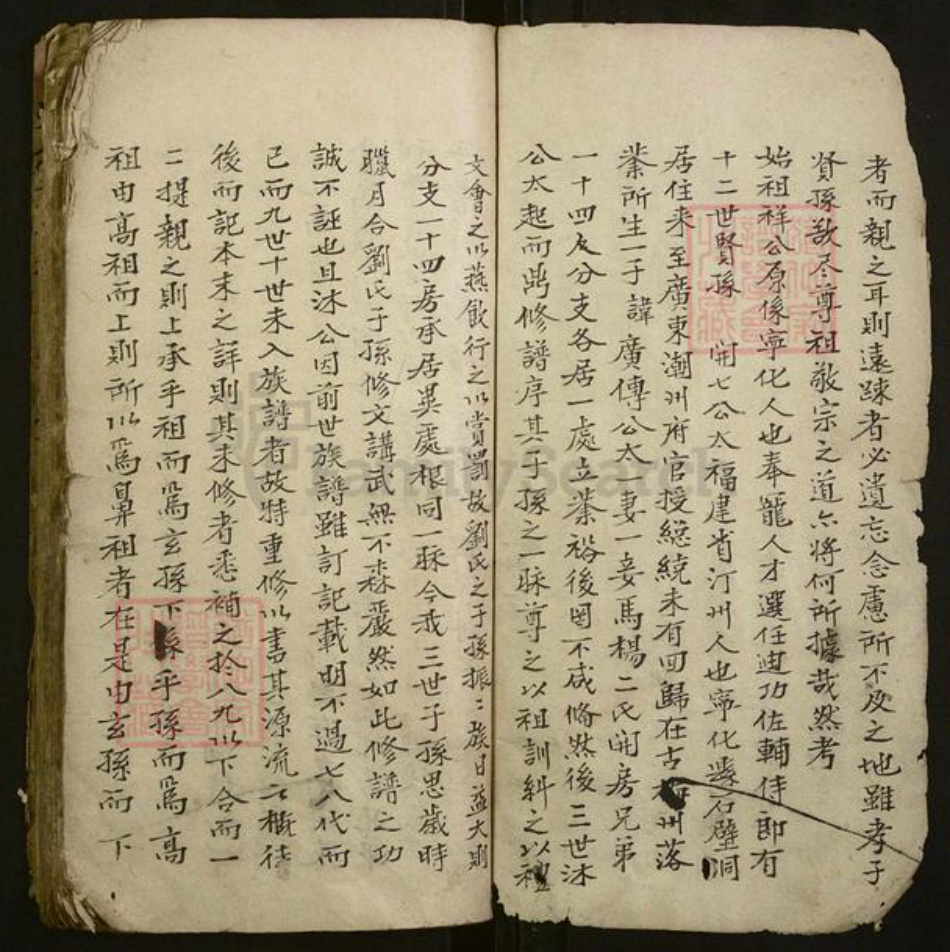 者而親之耳則遠踈者必遺忘念慮所不及之地雖孝子
賢孫敦尽尊祖敬宗之道亦將何所據哉然考
始祖祥公原係寧化人也奉寵人才選任迪功佐輔侍郎有
十二世賢孫 開七公太福建省汀州人也寧化縣石壁洞
居住来至廣東潮州府官授總統未有回歸在古梅州落
業所生一子諱廣傳公太一妻一妾馬楊二氏開房兄弟
一十四人分支各居一處立業裕後罔不咸俻然後三世沐
公太起而㫁修譜序其子孫之一脉尊之以祖訓糾之以禮
文會之以燕飲行之以賞罰故劉氏之子孫振〻族日益大則
分支一十四房承居異處根同一脉今我三世子孫思歲時
臘月合劉氏子孫修文講武無不森嚴然如此修譜之功
誠不誣也且沐公因前世族譜雖訂記載明不過七八代而
已而九世十世未入族譜者故特重修以書其源流之概待
後而記本末之詳則其未修者悉補之於八九以下合而一
二提親之則上承乎祖而為玄孫下孫乎孫而為高
祖由高祖而上則所以為鼻祖者在是由玄孫而下
FamilySearch